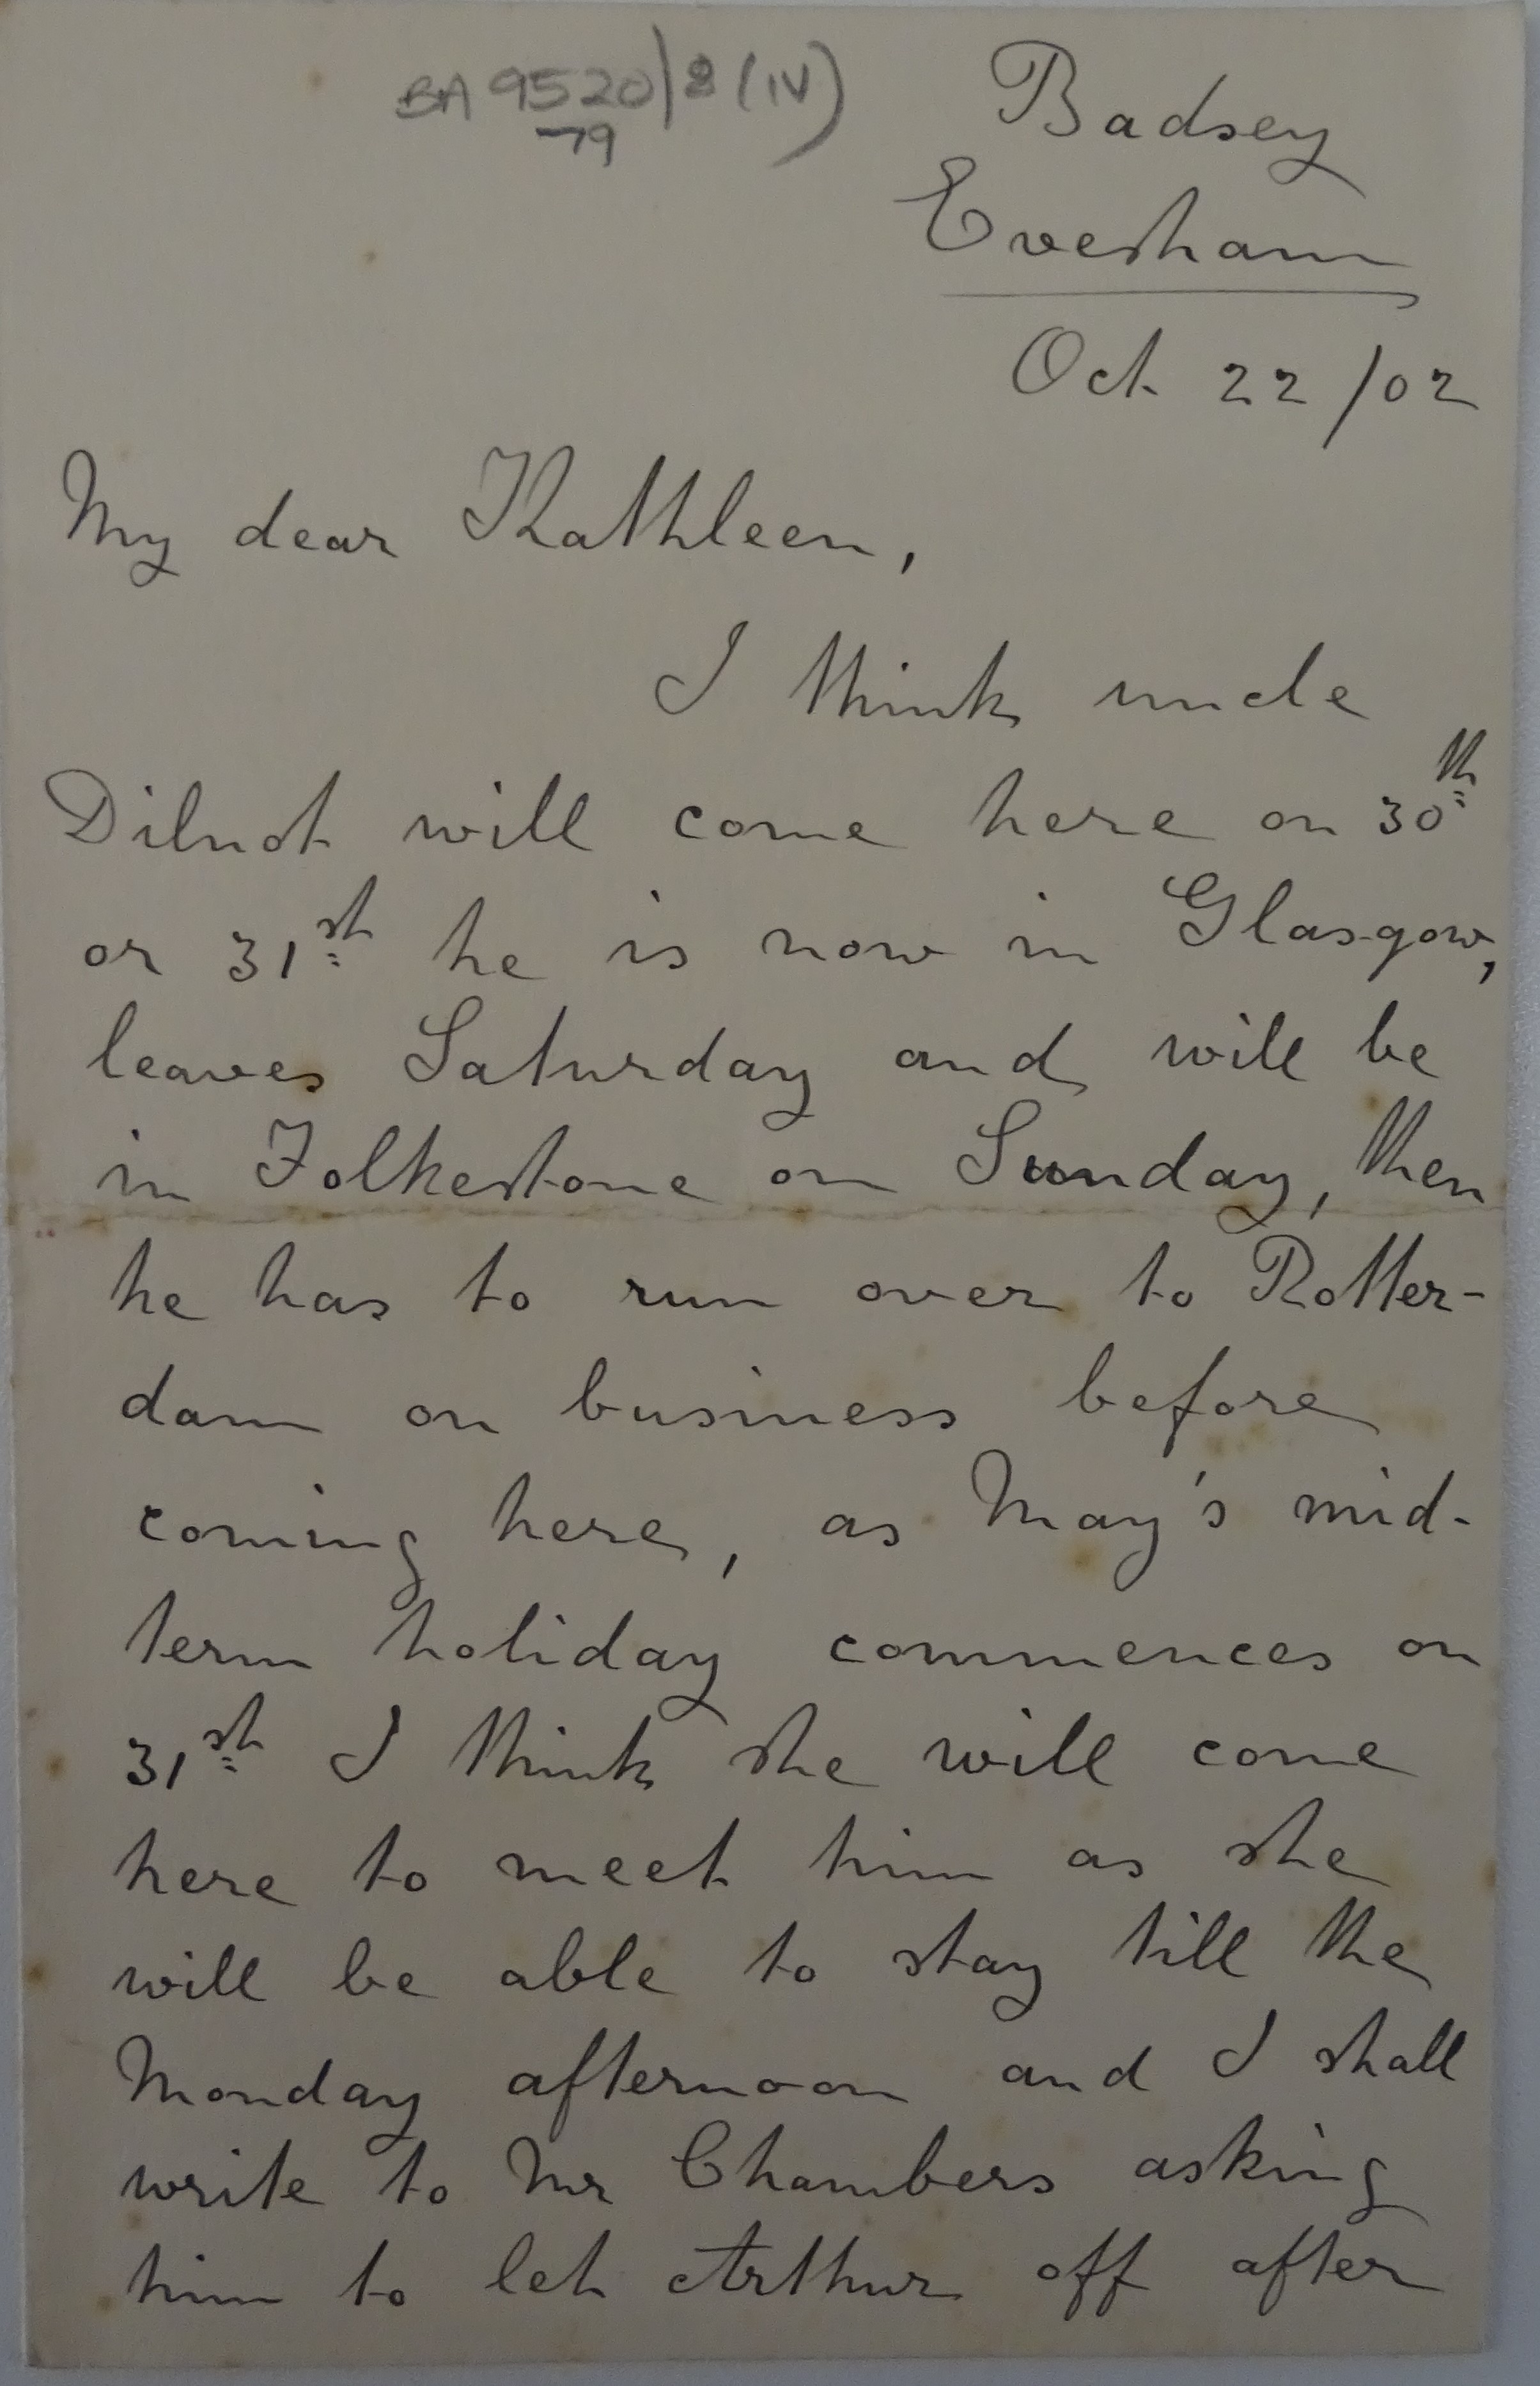 BA 9520/8 (IV)
79
Badsey
Evesham
Oct 22/02
My dear Kathleen,
I think uncle
Dilnot will come here on 30th
or 31st he is now in Glasgow,
leaves Saturday and will be
in Folkestone on Sunday, then
he has to run over to Rotter-
dam on business before
coming here, as May's mid-
term holiday commences on
31st I think she will come
here to meet him as she
will be able to stay till the
Monday afternoon and I shall
write to Mr Chambers asking
him to let Arthur off after